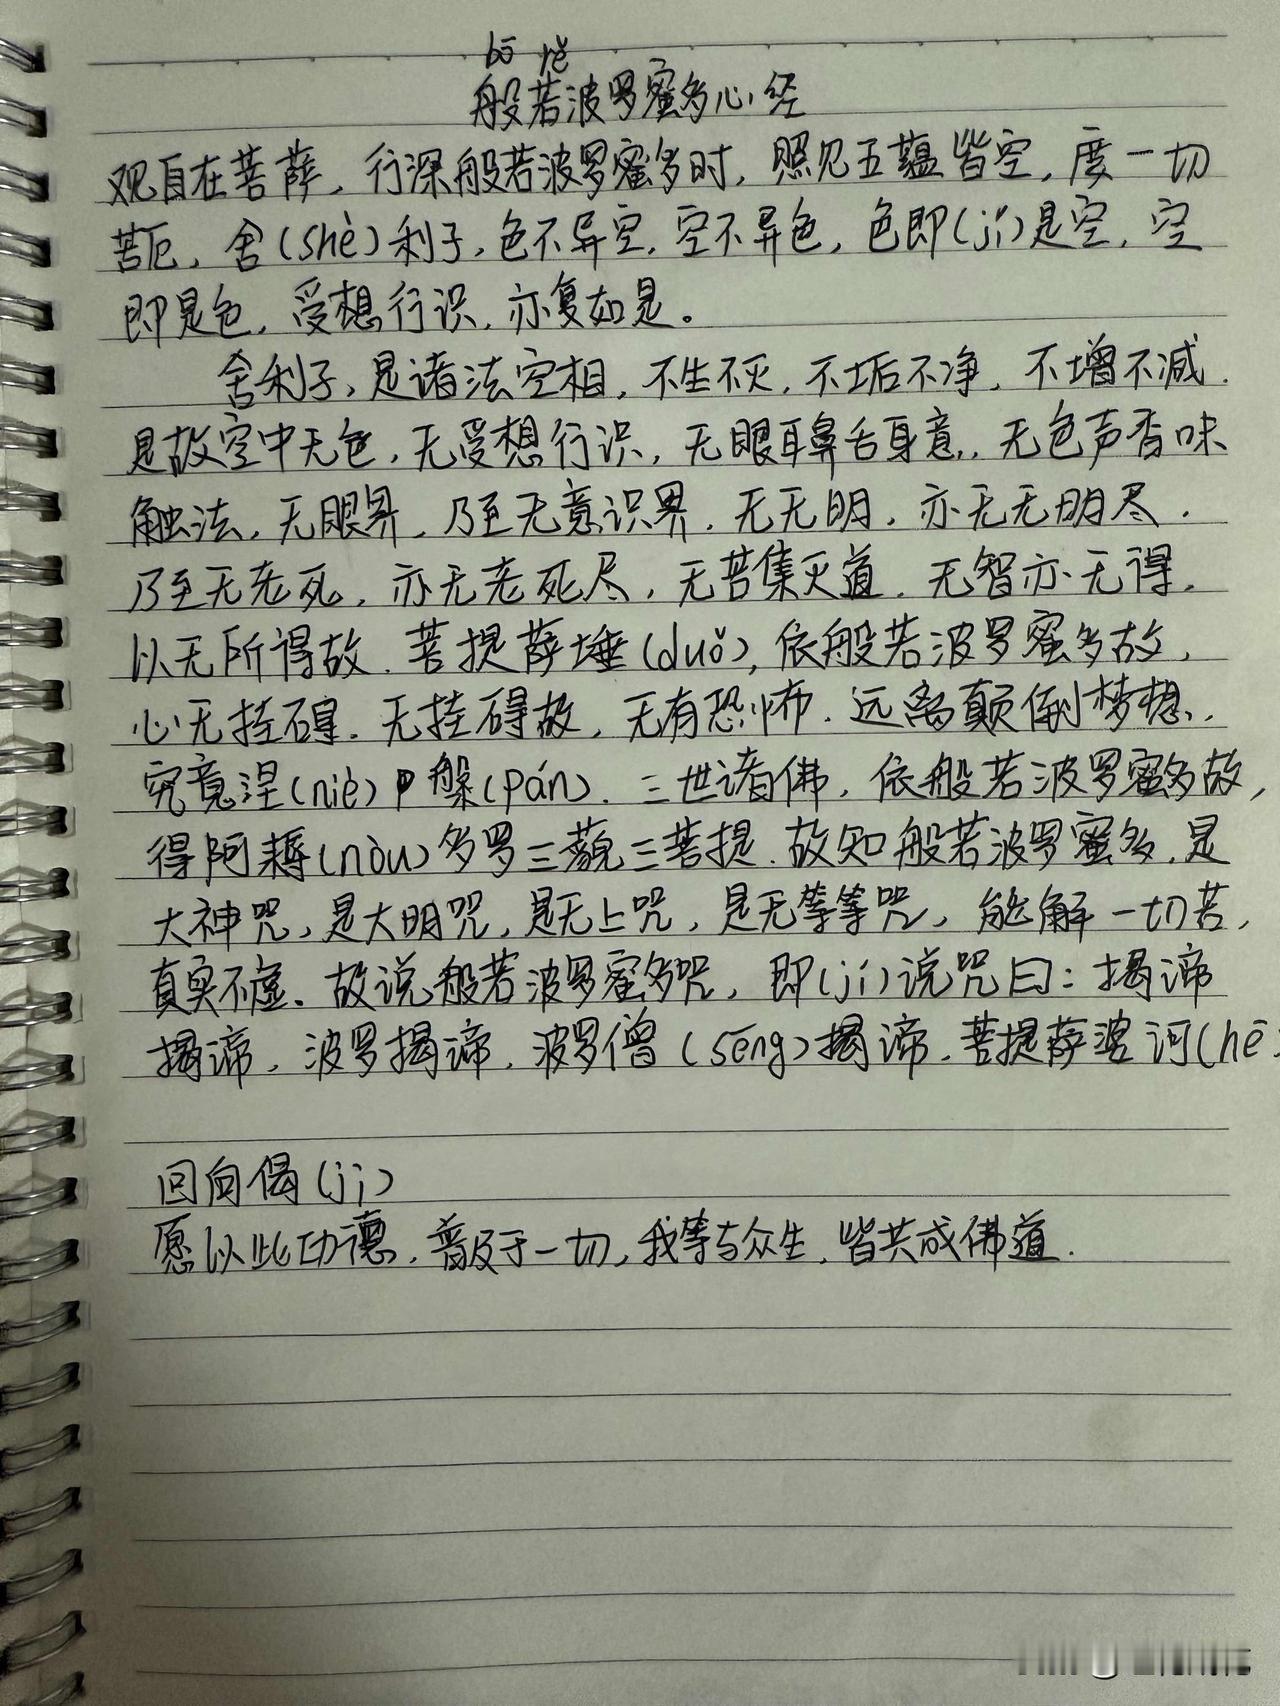 bō rě
般若波罗蜜多心经
观自在菩萨,行深般若波罗蜜多时,照见五蕴皆空,度一切
苦厄,舍(shè)利子,色不异空,空不异色,色即(jí)是空,空
即是色,受想行识,亦复如是。
舍利子,是诸法空相,不生不灭,不垢不净,不增不减.
是故空中无色,无受想行识,无眼耳鼻舌身意,无色声香味
触法,无眼界,乃至无意识界,无无明,亦无无明尽.
乃至无老死,亦无老死尽,无苦集灭道,无智亦无得,
以无所得故.菩提萨埵(duǒ),依般若波罗蜜多故,
心无挂碍.无挂碍故,无有恐怖.远离颠倒梦想,
究竟涅(niè)槃(pán).三世诸佛,依般若波罗蜜多故,
得阿耨(nòu)多罗三藐三菩提.故知般若波罗蜜多,是
大神咒,是大明咒,是无上咒,是无等等咒,能解一切苦,
真实不虚.故说般若波罗蜜多咒,即(jí)说咒曰:揭谛
揭谛,波罗揭谛,波罗僧(sēng)揭谛.菩提萨婆诃(hē)
回向偈(jì)
愿以此功德,普及于一切,我等与众生,皆共成佛道.